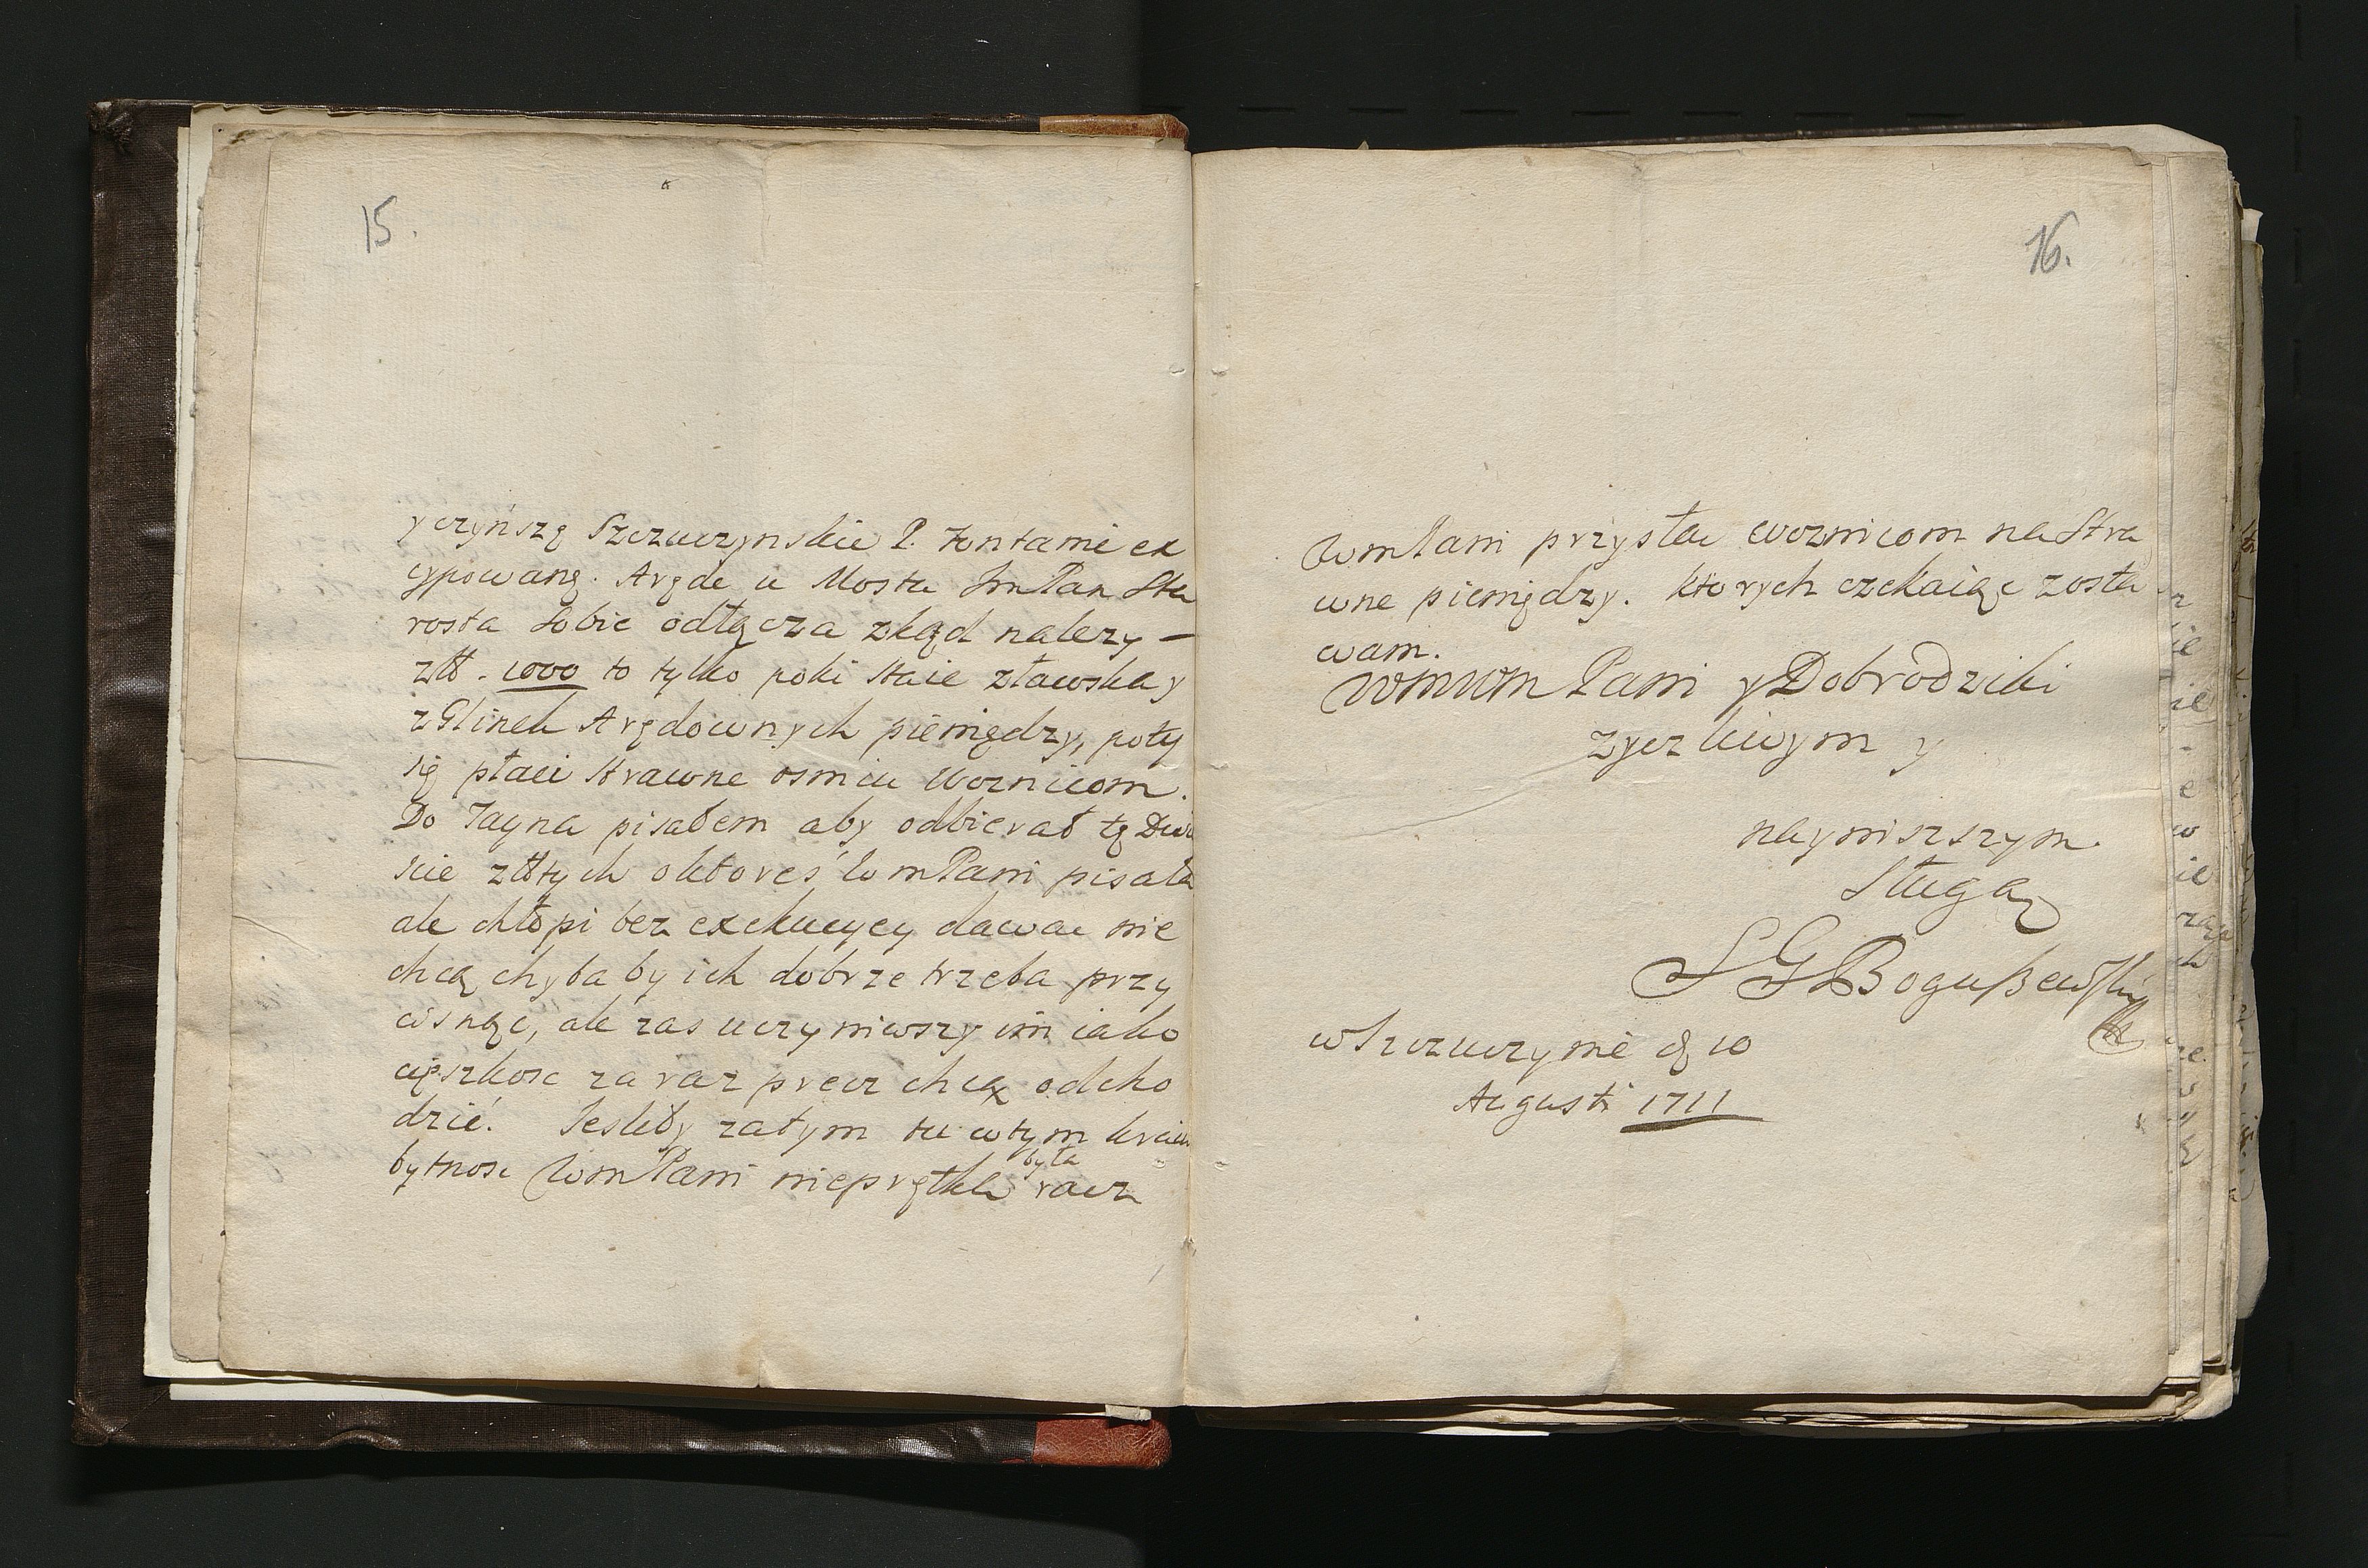 15.
y czyńszę Szczuczynskie P. Fontami ex
cypowanę. Arędę u Mosta ImPan Sta
rosta sobie odłącza zkąd nalezy —
złł. 1000 to tylko poki staie zławska y
z Glinek Arędownych pieniędzy, poty
się płaci strawne osmiu Woznicom.
Do Jayna pisałem aby odbierał tę Dwie
scie złłtych oktoreś WmPani pisała
ale chłopi bez exekucyey dawac nie
chcą chyba by ich dobrze trzeba przy
cisnąc, ale zas uczyniwszy im iako
cięszkosc zaraz precz chcą odcho
dzić. Jesliby zatym tu wtym kraiu
bytnosc WmPani nieprętka była racz
16.
WmPani przysłac woznicom na Stra
wne pieniędzy. Ktorych czekaiąc zosta
wam.
WMWM Pani y Dobrodziki
zyczliwym y
nayniszszym.
Sługą
S G Bogußewsky
w Szczuczynie d 10
Augusti 1711